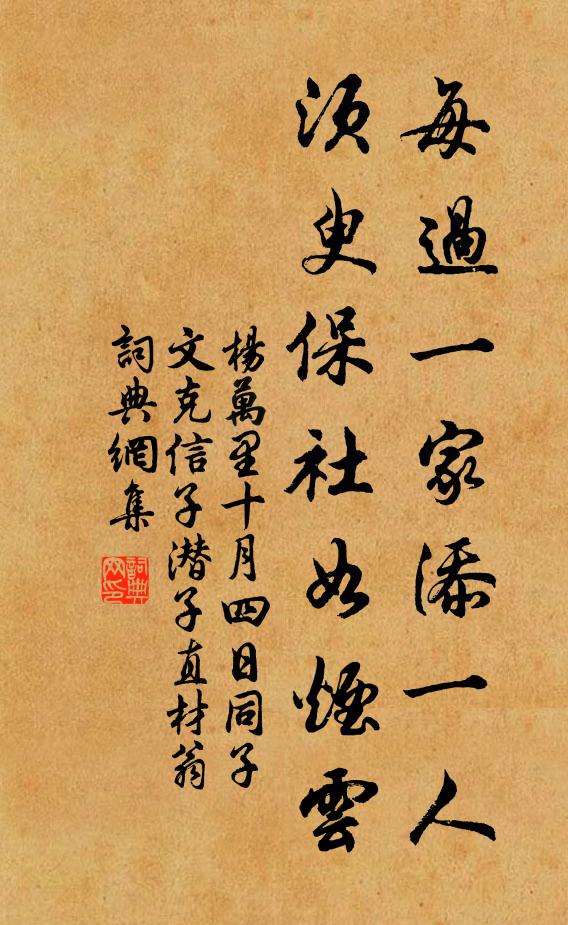 每過一家添一人
須臾保社如煙雲
楊萬里十月四日同子
文克信子潛子直材翁
詞典網集
詞典網印